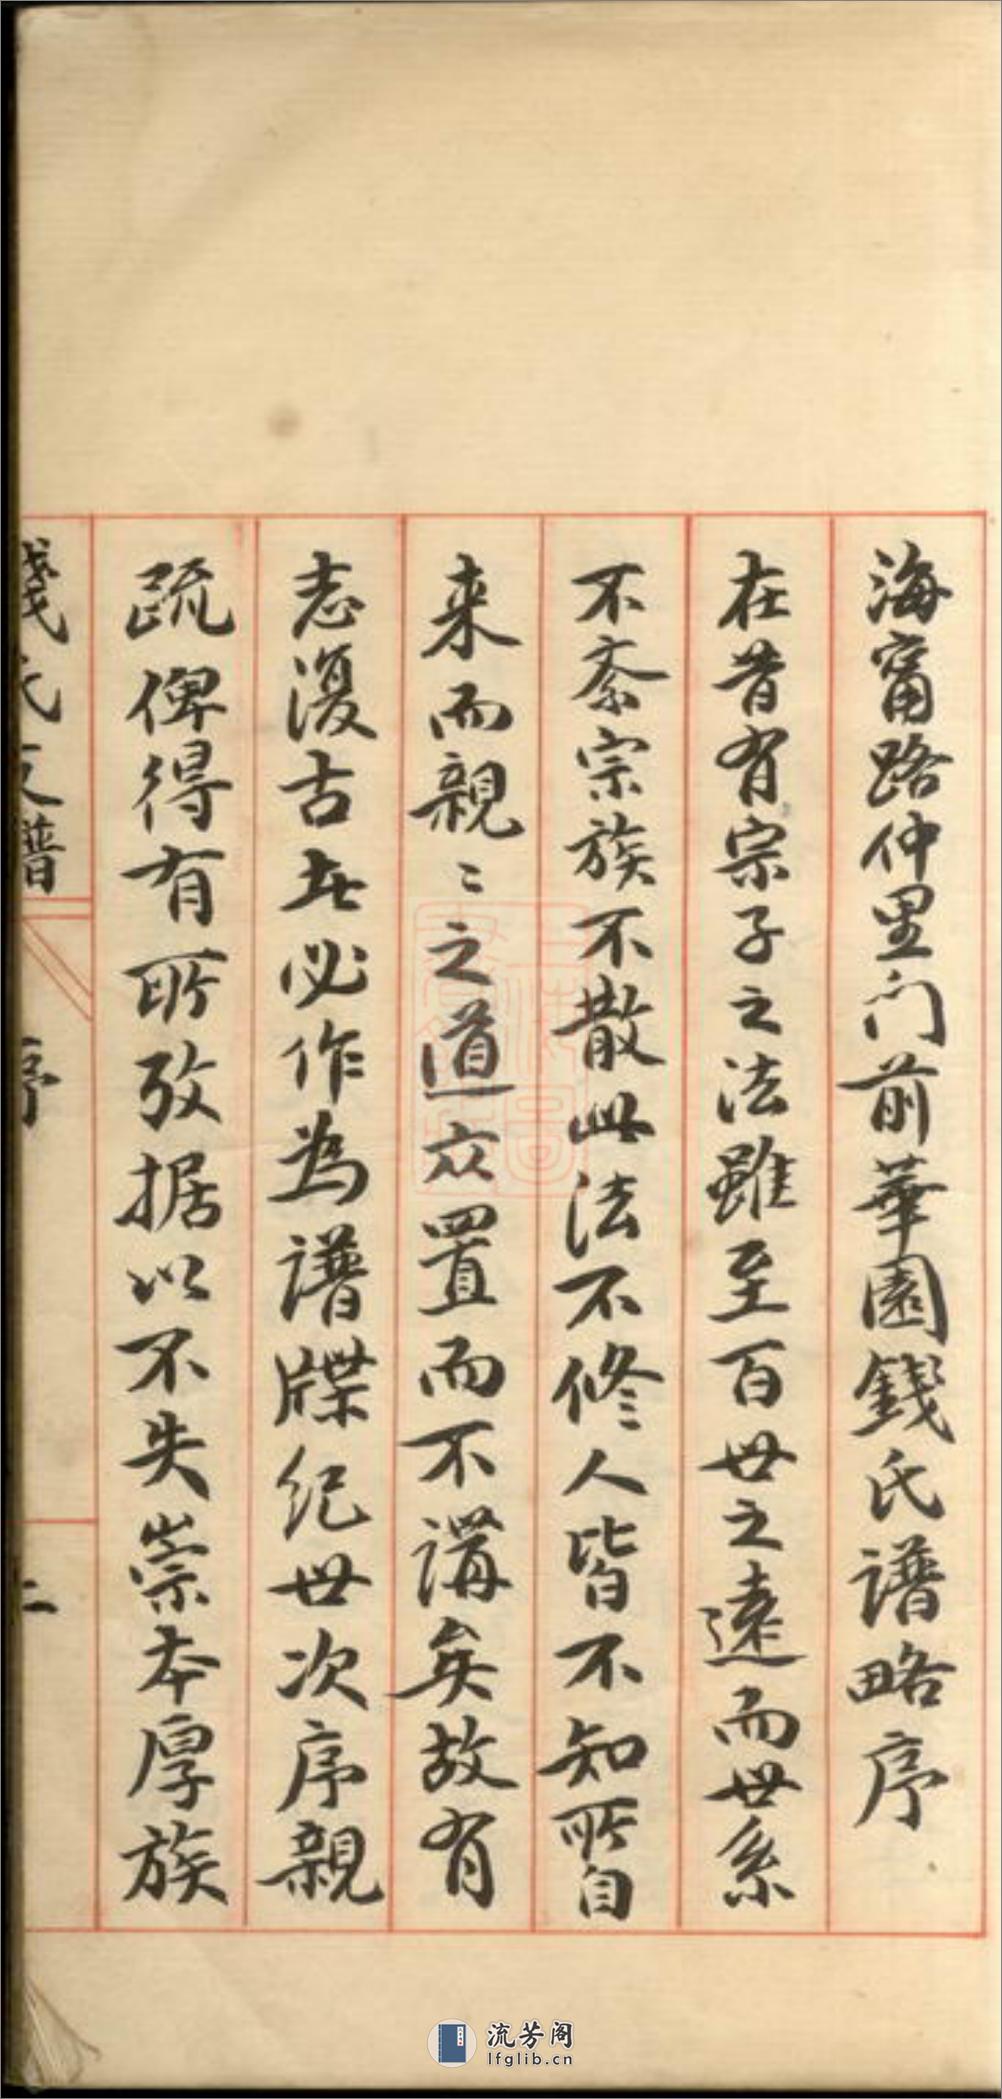 海甯路仲里门前華園錢氏譜略序
在昔有宗子之法雖至百世之遠而世系
不紊宗族不散此法不修人皆不知所自
来而親〻之道亦置而不講矣故有
志復古者必作為譜牒紀世次序親
疏俾得有所攷据以不失崇本厚族
錢氏支譜
序
二
流芳阁
lfglib.cn